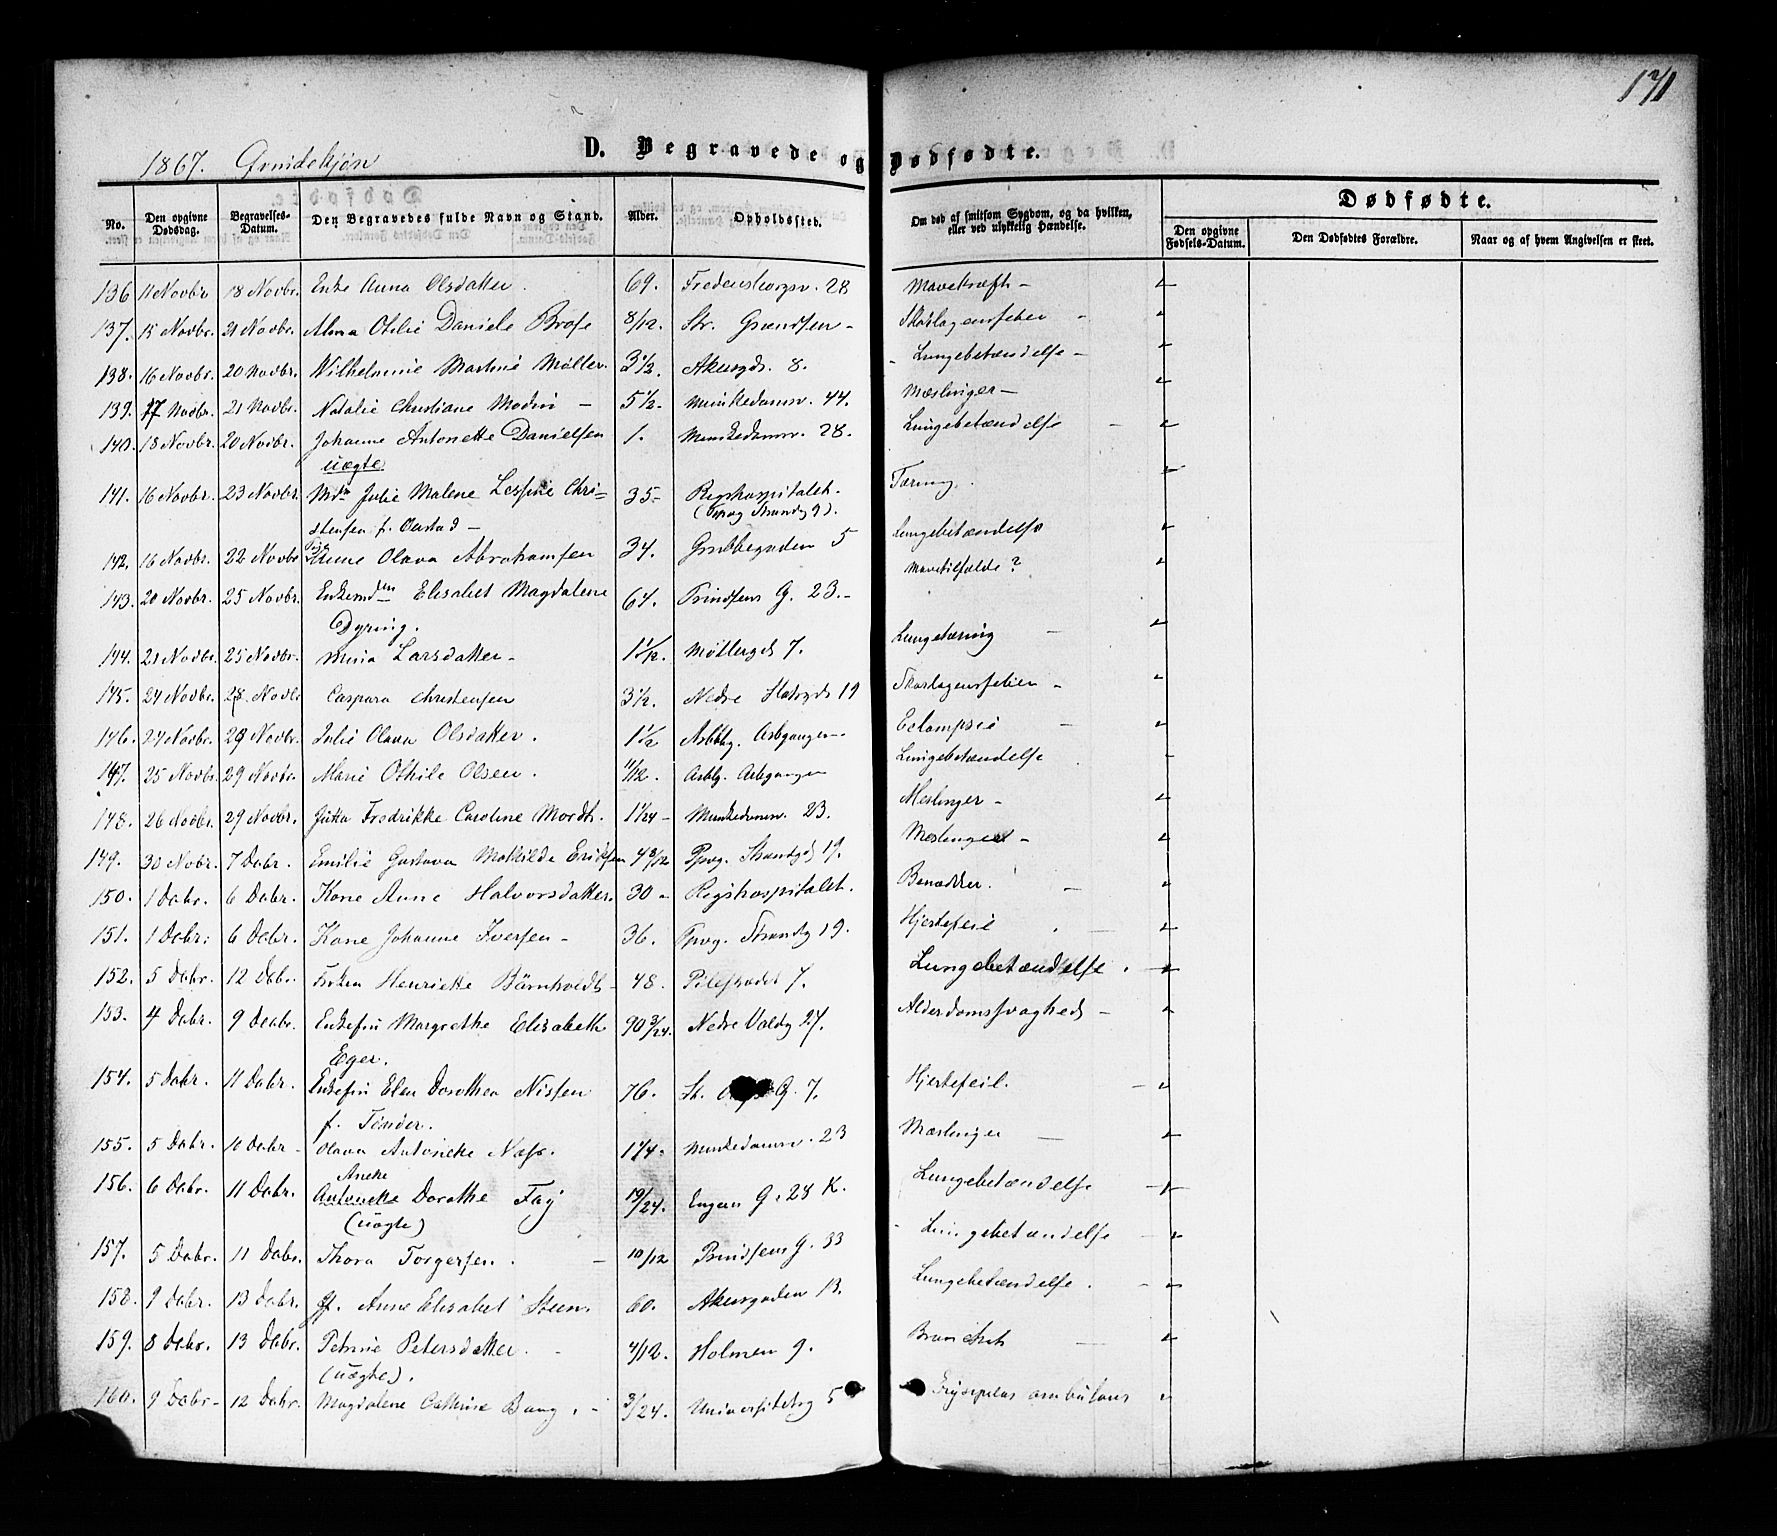 171
1867. Qvindekjøn
D. Begravede og Dødfødte.
No. | Den opgivne Dødsdag. | Begravelses-Datum. | Den Begravedes fulde Navn og Stand. | Alder. | Opholdssted. | Om død af smitsom Sygdom, og da hvilken, eller ved ulykkelig Hændelse. | Dødfødte.
Den opgivne Fødsels-Datum. | Den Dødfødtes Forældre. | Naar og af hvem Angivelsen er skeet.
136 | 11 Novbr | 18 Novbr. | Enke Anna Olsdatter. | 69. | Fredensborgsv. 28 | Mavekræft -
137. | 15 Novbr. | 21 Novbr. | Alma Othilie Daniele Brose | 8/12. | Str. Grændsen - | Skarlagensfeber -
138. | 16 Novbr. | 20 Novbr. | Wilhelmine Martine Møller. | 3 1/2. | Akersgd. 8. | Lungebetændelse -
139. | 17 Novbr. | 21 Novbr. | Natalie Christiane Modin - | 5 1/2. | Munkedamsv. 44. | Mæslinger -
140. | 18 Novbr. | 20 Novbr. | Johanne Antonette Danielsen | 1. | Munkedamsv. 28. | Lungebetændelse -
uægte
141. | 16 Novbr. | 23 Novbr. | Mdm Julie Malene Chri= | 35- | Rigshospitalet. | Tæring.
stensen f. -
142. | 16 Novbr. | 22 Novbr | Anne Olava Abrahamsen | 34. | Grubbegaden 5 | Lungebetændelse
143. | 20 Novbr. | 25 Novbr. | Elisabet Magdalene | 64. | Prindsens G. 23.- | Mavetilfælde?
Dyring.
144. | 21 Novbr. | 25 Novbr. | Mina Larsdatter - | 1 1/12. | Møllergd 7. | Lungetæring -
145. | 24 Novbr. | 28. Novbr | Caspara Christensen | 3 1/2. | Nedre Slotsgd 19 | Skarlagensfeber -
146. | 27 Novbr. | 29 Novbr. | Julie Olava Olsdatter. | 1 1/2 | Asbbg. Asbgangen - | Eclampsie -
147. | 25 Novbr. | 29 Novbr | Marie Othile Olsen. | 11/12. | Asbbg. Asbgangen | Lungebetændelse
148. | 26 Novbr. | 29 Novbr. | Jutta Fredrikke Caroline Mordt. | 1 1/24 - | Munkedamsv. 23. | Meslinger -
149. | 30 Novbr. | 7 Dcbr. | Emilie Gustava Mathilde Eriksen | 4 8/12 | Ppvg. Strandgd 19. | Meslinger -
150. | 1 Dcbr. | 6 Dcbr. | Kone Anne Halvorsdatter. | 30 - | Rigshospitalet. | Benædder. -
151. | 1 Dcbr. | 6 Dcbr. | Kone Johanne Iversen - | 36. | Ppvg. Strandg 19. | Hjertefeil -
152. | 5 Dcbr. | 12 Dcbr | Frøken Henriette Bärnholdt - | 48. | Pilestrædet 7. | Lungebetændelse. -
153. | 4 Dcbr. | 9 Dcbr. | Enkefru Margrethe Elisabeth | 90 3/24. | Nedre Voldg 27. | Alderdomssvaghed -
Eger.
154. | 5 Dcbr. | 11 Dcbr. | Enkefru Elen Dorothea Nissen | 76. | St. G. 7. | Hjertefeil. -
f. Tønder.
155. | 5 Dcbr. | 10 Dcbr - | Olava Antonette Næss. | 1 1/4. | Munkedamsv. 23 | Mæslinger -
Anette
156. | 6 Dcbr. | 11 Dcbr. | Antonette Dorothe Fay | 19/24. | Engens G. 28 K. | Lungebetændelse -
(uægte)
157. | 5 Dcbr. | 11 Dcbr. | Thora Torgersen. - | 10/12 | Prindsens G. 33 | Lungebetændelse -
158. | 9 Dcbr. | 13 Dcbr. | Anne Elisabet Steen | 60. | Akersgaden 13. | Lungebetændelse. -
159. | 8 Dcbr. | 13 Dcbr. | Petrine Petersdatter. - | 4/12. | Holmen 9. | Bronchit -
(uægte).
160. | 9 Dcbr - | 12 Dcbr. | Magdalene Cathrine Bang. - | 3/24. | Universitetsg 5 | Erysipelas ambulans